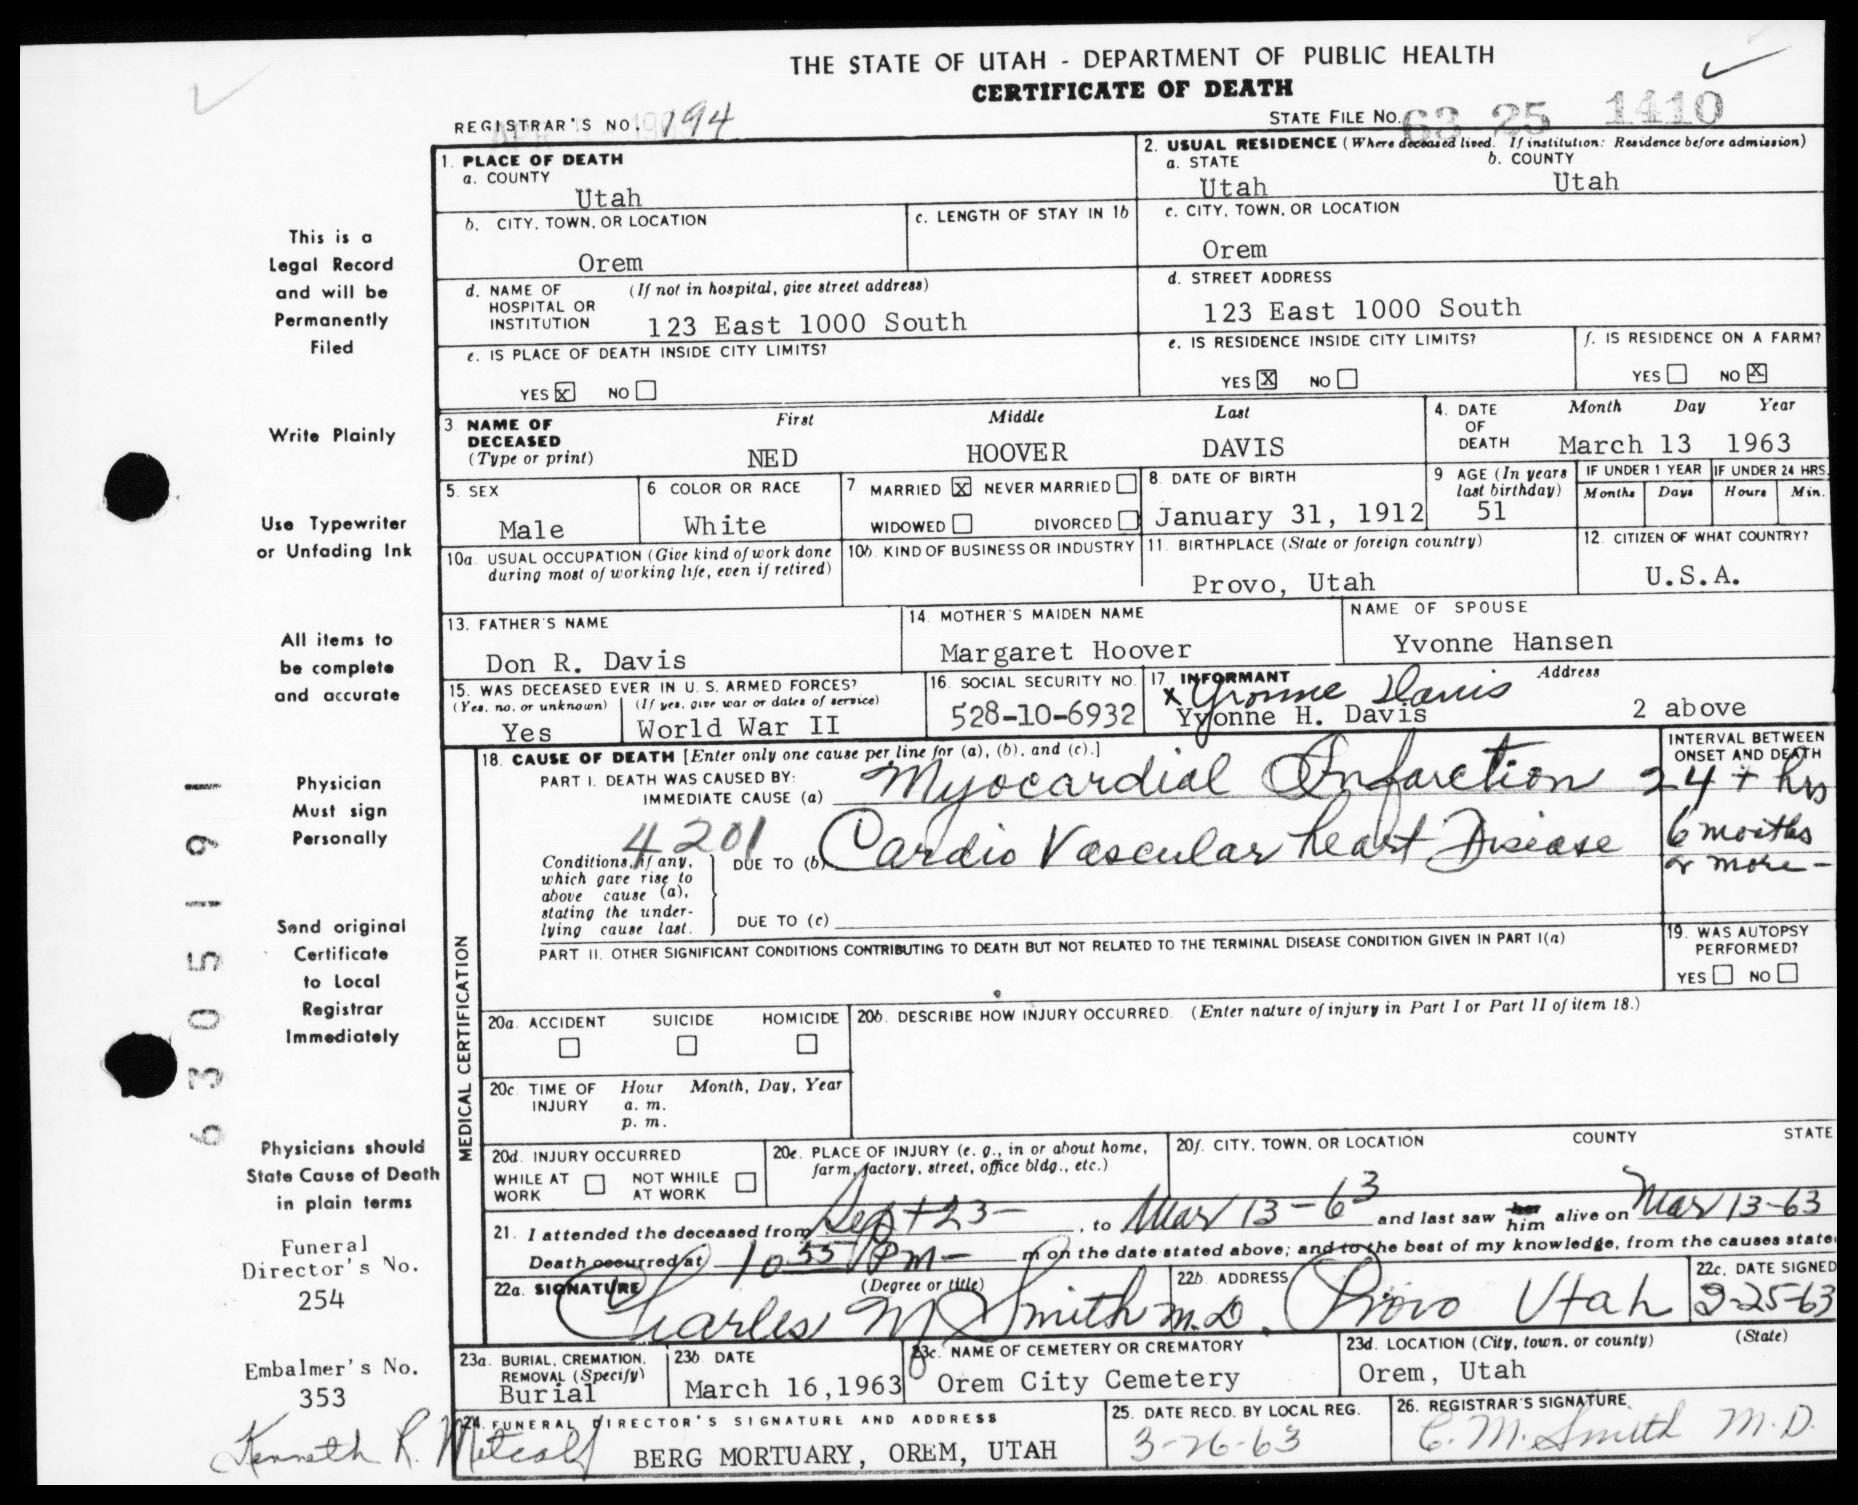 THE STATE OF UTAH - DEPARTMENT OF PUBLIC HEALTH
CERTIFICATE OF DEATH
REGISTRAR'S NO. 194
STATE FILE NO. 63 25 1410
1. PLACE OF DEATH
a. COUNTY
Utah
2. USUAL RESIDENCE (Where deceased lived. If institution: Residence before admission)
a. STATE b. COUNTY
Utah Utah
b. CITY, TOWN, OR LOCATION
Orem
c. LENGTH OF STAY IN 1b
c. CITY, TOWN, OR LOCATION
Orem
d. NAME OF (If not in hospital, give street address)
HOSPITAL OR
INSTITUTION 123 East 1000 South
d. STREET ADDRESS
123 East 1000 South
e. IS PLACE OF DEATH INSIDE CITY LIMITS?
YES X NO
e. IS RESIDENCE INSIDE CITY LIMITS?
YES X NO
f. IS RESIDENCE ON A FARM?
YES NO X
3. NAME OF First Middle Last
DECEASED
(Type or print) NED HOOVER DAVIS
4. DATE Month Day Year
OF
DEATH March 13 1963
5. SEX
Male
6 COLOR OR RACE
White
7 MARRIED X NEVER MARRIED
WIDOWED DIVORCED
8. DATE OF BIRTH
January 31, 1912
9 AGE (In years
last birthday)
51
IF UNDER 1 YEAR IF UNDER 24 HRS.
Months Days Hours Min.
10a. USUAL OCCUPATION (Give kind of work done
during most of working life, even if retired)
10b. KIND OF BUSINESS OR INDUSTRY
11. BIRTHPLACE (State or foreign country)
Provo, Utah
12. CITIZEN OF WHAT COUNTRY?
U.S.A.
13. FATHER'S NAME
Don R. Davis
14. MOTHER'S MAIDEN NAME
Margaret Hoover
NAME OF SPOUSE
Yvonne Hansen
15. WAS DECEASED EVER IN U. S. ARMED FORCES?
(Yes, no, or unknown) (If yes, give war or dates of service)
Yes World War II
16. SOCIAL SECURITY NO.
528-10-6932
17. INFORMANT Address
x Yvonne Davis
Yvonne H. Davis 2 above
MEDICAL CERTIFICATION
18. CAUSE OF DEATH [Enter only one cause per line for (a), (b), and (c).]
INTERVAL BETWEEN
ONSET AND DEATH
PART I. DEATH WAS CAUSED BY:
IMMEDIATE CAUSE (a) Myocardial Infarction 24 + hrs
4201
Conditions, if any,
which gave rise to
above cause (a),
stating the under-
lying cause last.
DUE TO (b) Cardio Vascular heart Disease 6 months
or more -
DUE TO (c)
PART II. OTHER SIGNIFICANT CONDITIONS CONTRIBUTING TO DEATH BUT NOT RELATED TO THE TERMINAL DISEASE CONDITION GIVEN IN PART I(a)
19. WAS AUTOPSY
PERFORMED?
YES NO
20a. ACCIDENT SUICIDE HOMICIDE
20b. DESCRIBE HOW INJURY OCCURRED. (Enter nature of injury in Part I or Part II of item 18.)
20c. TIME OF Hour Month, Day, Year
INJURY a. m.
p. m.
20d. INJURY OCCURRED
WHILE AT NOT WHILE
WORK AT WORK
20e. PLACE OF INJURY (e. g., in or about home,
farm, factory, street, office bldg., etc.)
20f. CITY, TOWN, OR LOCATION COUNTY STATE
21. I attended the deceased from Sept 23 - , to Mar 13-63 and last saw her him alive on Mar 13-63
Death occurred at 10 55 PM - m on the date stated above; and to the best of my knowledge, from the causes state
22a. SIGNATURE (Degree or title)
Charles M Smith M.D.
22b. ADDRESS
Provo Utah
22c. DATE SIGNED
3-25-63
23a. BURIAL, CREMATION,
REMOVAL (Specify)
Burial
23b. DATE
March 16,1963
23c. NAME OF CEMETERY OR CREMATORY
Orem City Cemetery
23d. LOCATION (City, town, or county) (State)
Orem, Utah
24. FUNERAL DIRECTOR'S SIGNATURE AND ADDRESS
Kenneth R. Metcalf BERG MORTUARY, OREM, UTAH
25. DATE RECD. BY LOCAL REG.
3-26-63
26. REGISTRAR'S SIGNATURE
C. M. Smith M.D.
This is a
Legal Record
and will be
Permanently
Filed
Write Plainly
Use Typewriter
or Unfading Ink
All items to
be complete
and accurate
Physician
Must sign
Personally
Send original
Certificate
to Local
Registrar
Immediately
Physicians should
State Cause of Death
in plain terms
Funeral
Director's No.
254
Embalmer's No.
353
6305191